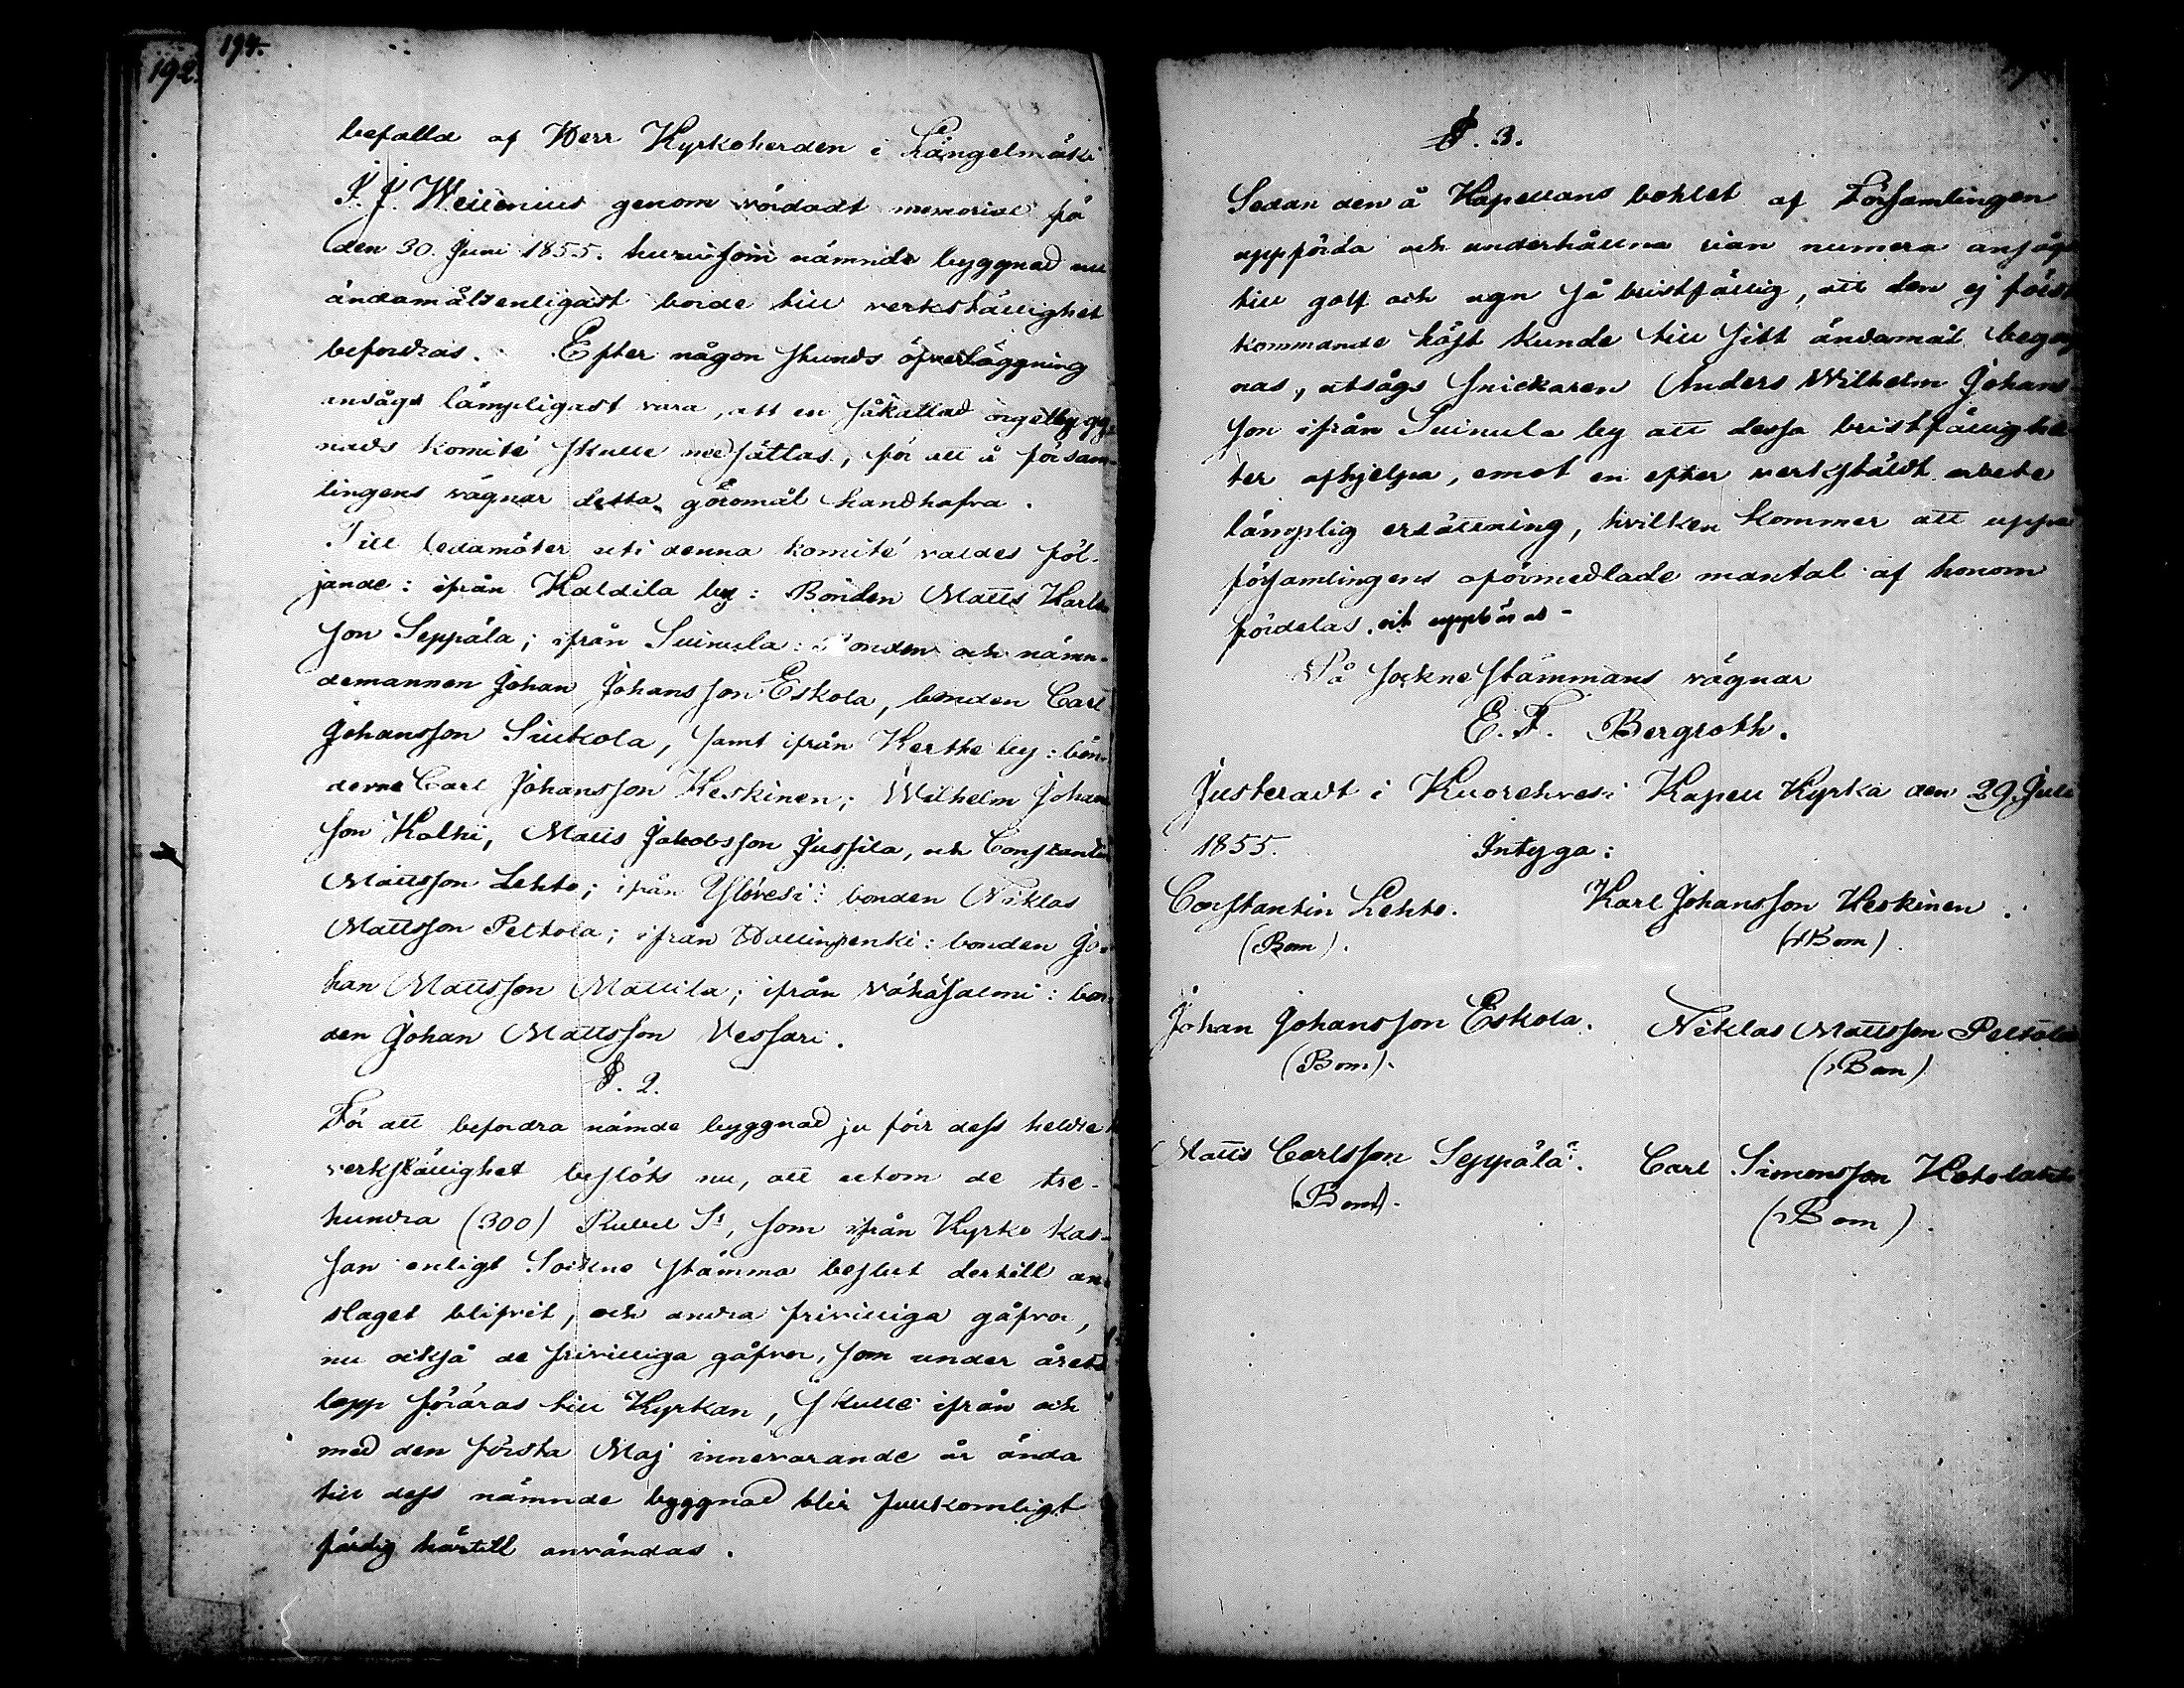 192.
194.
befalld af Herr Kyrkoherden i Längelmäki
J. J. Weilenius genom vördadt memorial på
den 30. Juni 1855. huruisom nämnde byggnad nu
ändamålsenligast borde till verkställighet
befordras. Efter någon stunds öfverläggning
ansågs lämpligast vara, att en såkallad orgelbygg-
nads komité skulle nedsättas, för att å försam-
lingens vägnar detta göromål handhafva.
Till ledamöter uti denna komité valdes föl-
jande: ifrån Kaldila by: Bonden Matts Karls-
son Seppäla; ifrån Suinula: Bonden och nämn-
demannen Johan Johansson Eskola, bonden Carl
Johansson Siukola, samt ifrån Kertte by: bön-
derne Carl Johansson Keskinen; Wilhelm Johan
son Kalki, Matts Jakobsson Jussila, och Constantin
Mattsson Lehto; ifrån Ylövesi: bonden Niklas
Mattsson Peltola; ifrån Wallinpenki: bonden Jo-
han Mattsson Mattila; ifrån Vähäsalmi: bon-
den Johan Mattsson Vessari.
§. 2.
För att befordra nämde byggnad ju förr dess heldre
verkställighet beslöts nu, att utom de tre-
hundra (300) Rubel Sr, som ifrån Kyrko kas-
san enligt Sockne stämma beslut dertill an-
slaget blifvit, och andra frivilliga gåfvor,
nu också de frivilliga gåfvor, som under årets
lopp föräras till Kyrkan, skulle ifrån och
med den första Maj innevarande år ända
till dess nämnde byggnad blir fullkomligt
färdig härtill användas.
§. 3.
Sedan den å Kapellans bohlet af Församlingen
uppförda och underhållna rian numera ansågs
till golf och ugn så bristfällig, att den ej först
kommande höst kunde till sitt ändamål begag
nas, utsågs snickaren Anders Wilhelm Johans
son ifrån Suinula by att dessa bristfällighe
ter afhjelpa, emot en efter verkstäldt arbete
lämplig ersättning, hvilken kommer att uppå
församlingens oförmedlade mantal af honom
fördelas, och uppbäras -
På sockne stämmans vägnar
E. F. Bergroth.
Justeradt i Kuorehvesi Kapell Kyrka den 29. Juli
1855. Intyga:
Constantin Lehto. Karl Johansson Keskinen.
(Bom). (Bom).
Johan Johansson Eskola. Niklas Mattsson Peltola
(Bom). (Bom)
Matts Carlsson Seppälä. Carl Simonsson
(Bom). (Bom).